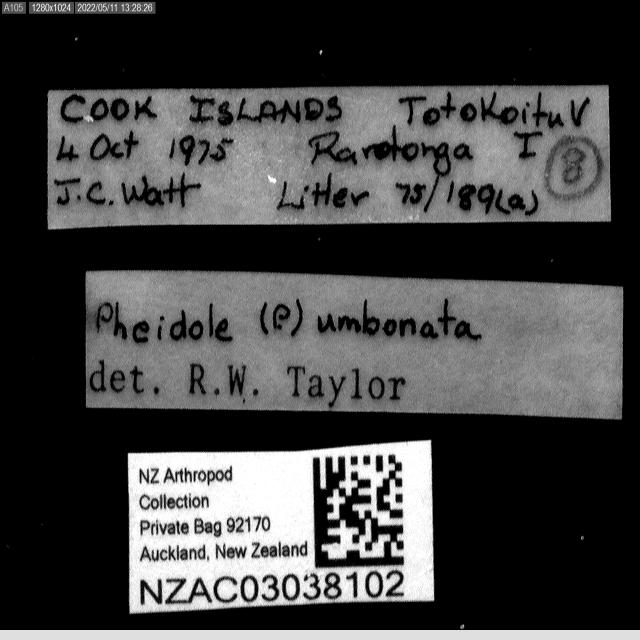 A105 1280x1024 2022/05/11 13:28:26
COOK ISLANDS Totokoitu V
4 Oct 1975 Rarotonga I
8
J.C. Watt Litter 75/189(a)
Pheidole (P) umbonata
det. R.W. Taylor
NZ Arthropod
Collection
Private Bag 92170
Auckland, New Zealand
NZAC03038102